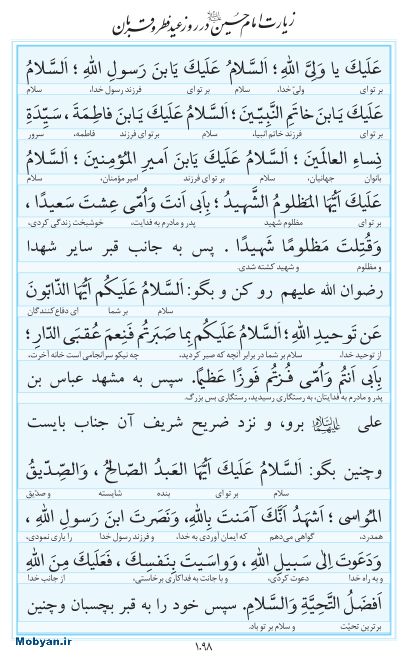 زیارت امام حسین علیه السلام در روز عید فطر و قربان
عَلَیكَ یا وَلِیَّ اللهِ ؛ اَلسَّلامُ عَلَیكَ یَابنَ رَسولِ اللهِ ؛ اَلسَّلامُ
بر تو ای ولیّ خدا، سلام بر تو ای فرزند رسول خدا، سلام
عَلَیكَ یَابنَ خاتَمِ النَّبِیّینَ ؛ اَلسَّلامُ عَلَیكَ یَابنَ فاطِمَةَ ، سَیِّدَةِ
بر تو ای فرزند خاتم انبیا، سلام بر تو ای فرزند فاطمه، سرور
نِساءِ العالَمینَ ؛ اَلسَّلامُ عَلَیكَ یَابنَ اَمیرِ المُؤمِنینَ ؛ اَلسَّلامُ
بانوان جهانیان، سلام بر تو ای فرزند امیر مؤمنان، سلام
عَلَیكَ اَیُّهَا المَظلومُ الشَّهیدُ ؛ بِاَبی اَنتَ وَاُمّی عِشتَ سَعیدًا ،
بر تو ای مظلوم شهید پدر و مادرم به فدایت، خوشبخت زندگی کردی،
وَقُتِلتَ مَظلومًا شَهیدًا . پس به جانب قبر سایر شهدا
و مظلوم و شهید کشته شدی.
رضوان الله علیهم رو کن و بگو: اَلسَّلامُ عَلَیکُم اَیُّهَا الذّابّونَ
سلام بر شما ای دفاع‌کنندگان
عَن تَوحیدِ اللهِ ؛ اَلسَّلامُ عَلَیکُم بِما صَبَرتُم فَنِعمَ عُقبَی الدّارِ ؛
از توحید خدا، سلام بر شما در برابر آنچه که صبر کردید، چه نیکو سرانجامی است خانه آخرت،
بِاَبی اَنتُم وَاُمّی فُزتُم فَوزًا عَظیمًا. سپس به مشهد عباس بن
پدر و مادرم به فدایتان، به رستگاری رسیدید، رستگاری بس بزرگ.
علی علیهما السلام برو، و نزد ضریح شریف آن جناب بایست
وچنین بگو: اَلسَّلامُ عَلَیكَ اَیُّهَا العَبدُ الصّالِحُ ، وَالصِّدّیقُ
سلام بر تو ای بنده شایسته و صدّیق
المُواسی ؛ اَشهَدُ اَنَّكَ آمَنتَ بِاللهِ، وَنَصَرتَ ابنَ رَسولِ اللهِ ،
همدرد، گواهی می‌دهم که ایمان آوردی به خدا، و فرزند رسول خدا را یاری نمودی،
وَدَعَوتَ اِلیٰ سَبیلِ اللهِ ، وَواسَیتَ بِنَفسِكَ ، فَعَلَیكَ مِنَ اللهِ
و به راه خدا دعوت کردی، و با جانت به فداکاری برخاستی، از جانب خدا
اَفضَلُ التَّحِیَّةِ وَالسَّلامِ. سپس خود را به قبر بچسبان وچنین
برترین تحیّت و سلام بر تو باد.
۱۰۹۸
Mobyan.ir